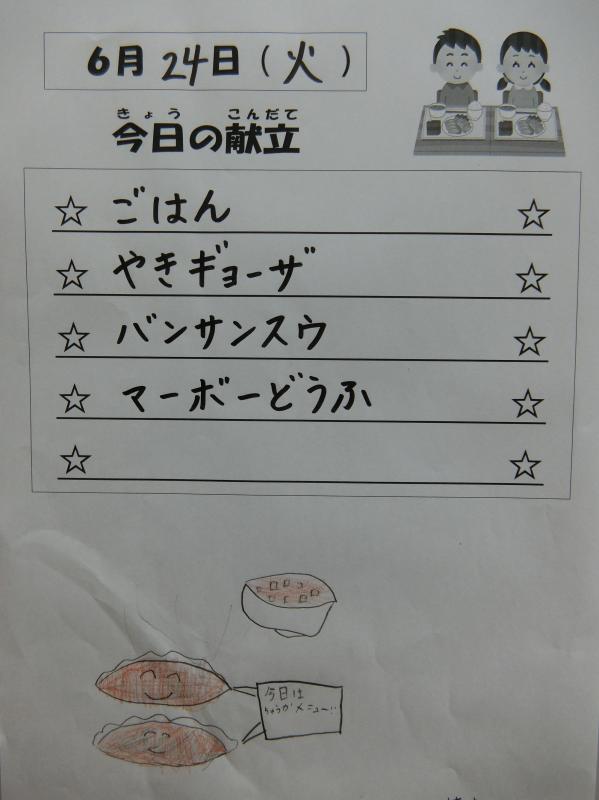 6月24日(火)
きょう こんだて
今日の献立
☆ ごはん ☆
☆ やきギョーザ ☆
☆ バンサンスウ ☆
☆ マーボーどうふ ☆
☆ ☆
今日は
ちゅうかメニュー!!